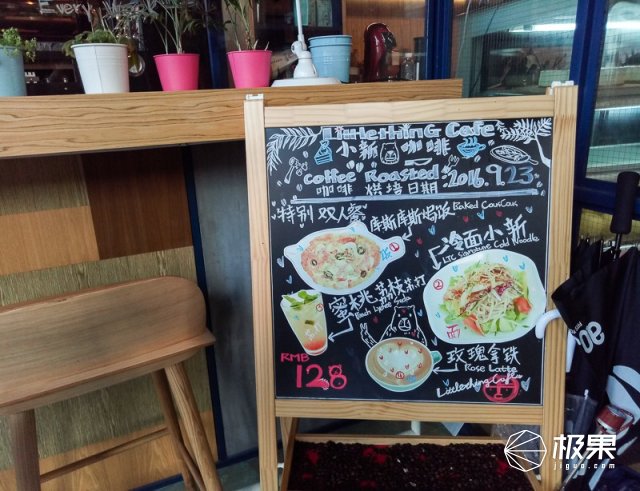 Every
LittlethinG Cafe
小新 咖啡
Coffee Roasted
咖啡 烘培日期 2016.9.23
特别 双人餐
库斯库斯焗饭 Baked CousCous
冷面小新
LTC Signature Cold Noodle
蜜桃荔枝苏打
Peach Lychee Soda
RMB
128
玫瑰拿铁
Rose Latte
LittlethingCafe
极果
jiguo.com